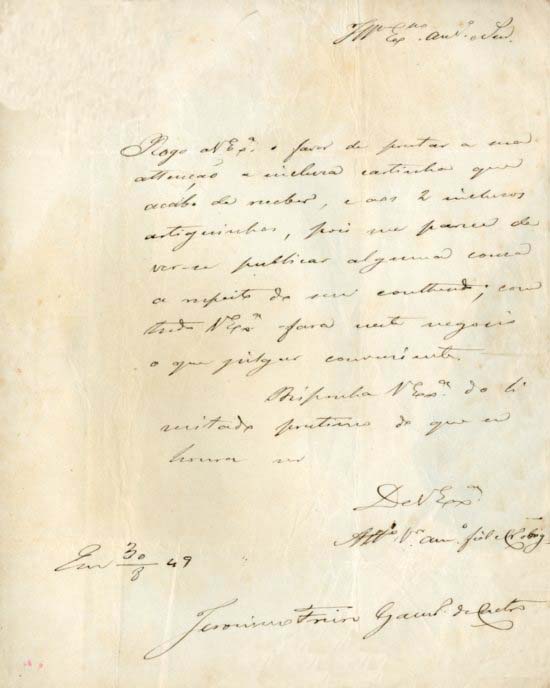 Illmo Exmo am.º e Snr.
Rogo a V Exª. o favor de prestar a sua
attenção a incluza cartinha que
acabo de receber, e aos 2 incluzos
artiguinhos, pois me parece de
ver-se publicar alguma couza
a respeito do seu contheudo; com
tudo V Exª fará neste negocio
o que julgar conveniente.
Disponha V Exª. do li
mitado prestimo de quem
honra ser
De V Exª.
Attº Vº am.º fiel e Cr obrig
Em 30/8 49
Jeronimo Freire